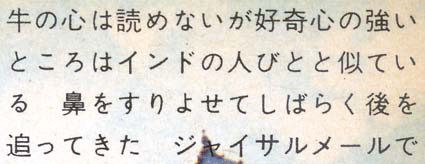 牛の心は読めないが好奇心の強い
ところはインドの人びとと似てい
る　鼻をすりよせてしばらく後を
追ってきた　ジャイサルメールで